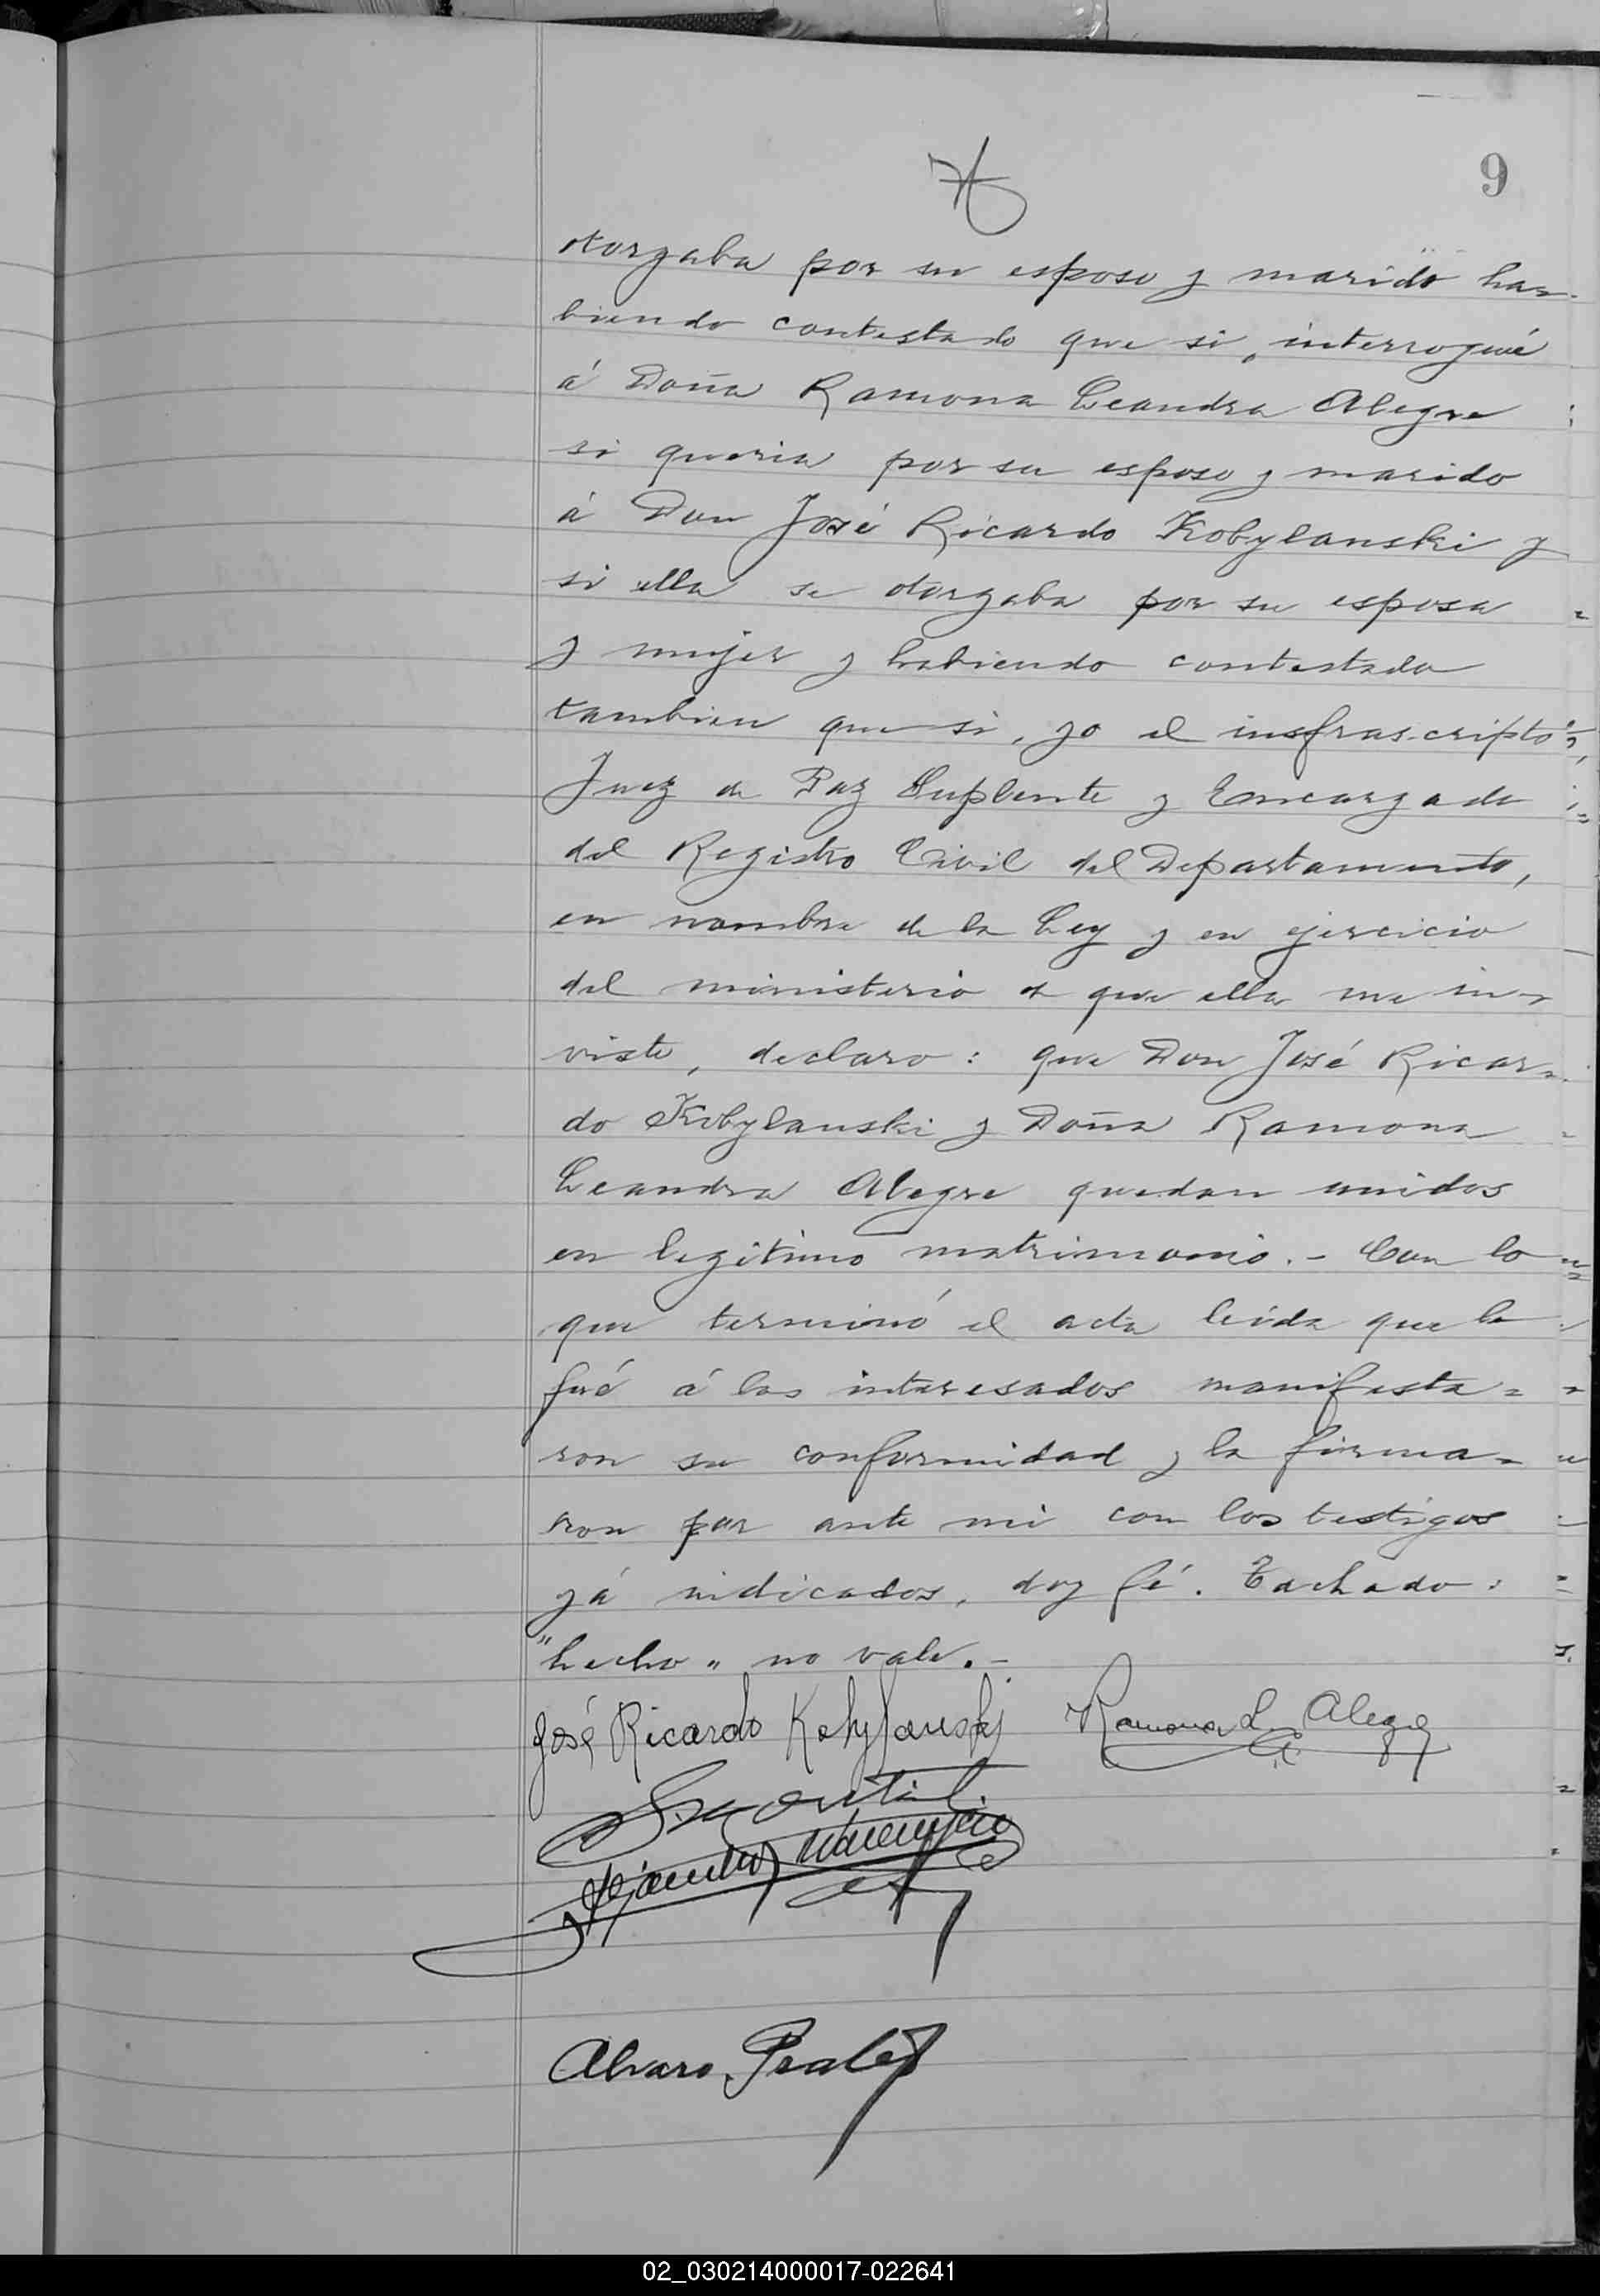 9
otorgaba por su esposo y marido ha-
biendo contestado que si, interrogué
á Doña Ramona Leandra Alegre
si queria por su esposo y marido
á Don José Ricardo Kobylanski y
si ella se otorgaba por su esposa
y mujer y habiendo contestado
tambien que si, yo el insfrascripto
Juez de Paz Suplente y Encargado
del Registro Civil del Departamento,
en nombre de la Ley y en ejercicio
del ministerio de que ella me in-
viste, declaro: que Don José Ricar-
do Kobylanski y Doña Ramona
Leandra Alegre quedan unidos
en legitimo matrimonio.- Con lo
que terminó el acta leida que le
fué á los interesados manifesta=
ron su conformidad y la firma=
ron por ante mi con los testigos
yá indicados, doy fé. Tachado:
"hecho" no vale.-
José Ricardo Kobylanski Ramona L. Alegre
Alvaro
02_030214000017-022641